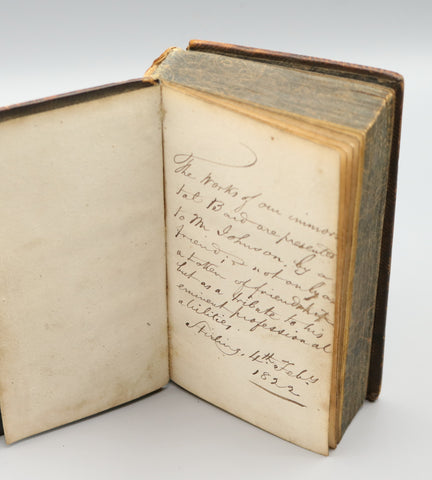 The Works of our immor
tal Bard are presented
to Mr Johnson by a
friend; & not only as
a token of friendship
but as a tribute to his
eminent professional
abilities.
Stirling, 4th Feby
1822